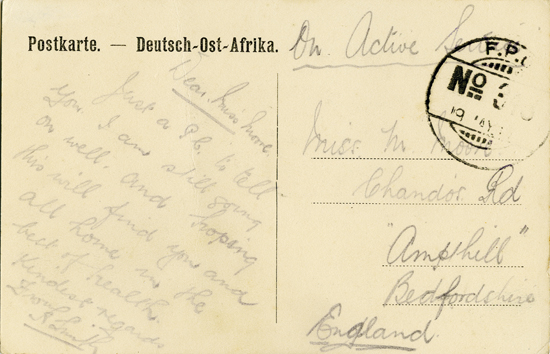 Postkarte. — Deutsch-Ost-Afrika.
On Active
F.P.
No 3
19
Dear Miss Moore
Just a P.c. to tell
you I am still going
on well, and hoping
this will find you and
all home in the
best of health.
Kindest regards
From
Miss M. Moore
Chandos Rd
"Ampthill"
Bedfordshire
England.